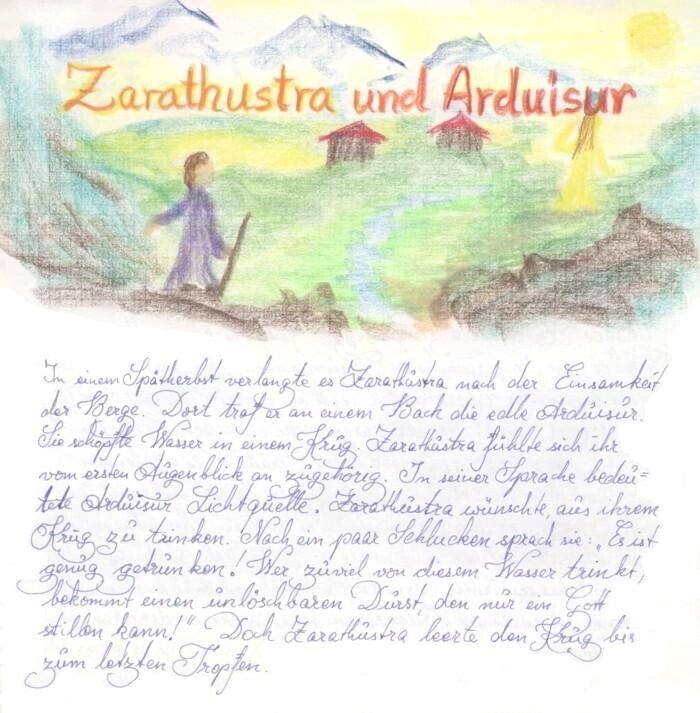 Zarathustra und Arduisur
In einem Spätherbst verlangte es Zarathustra nach der Einsamkeit
der Berge. Dort traf er an einem Bach die edle Arduisur.
Sie schöpfte Wasser in einem Krug. Zarathustra fühlte sich ihr
vom ersten Augenblick an zugehörig. In seiner Sprache bedeu=
tete Arduisur Lichtquelle. Zarathustra wünschte, aus ihrem
Krug zu trinken. Nach ein paar Schlucken sprach sie: „Es ist
genug getrunken! Wer zuviel von diesem Wasser trinkt,
bekommt einen unlöschbaren Durst, den nur ein Gott
stillen kann!" Doch Zarathustra leerte den Krug bis
zum letzten Tropfen.